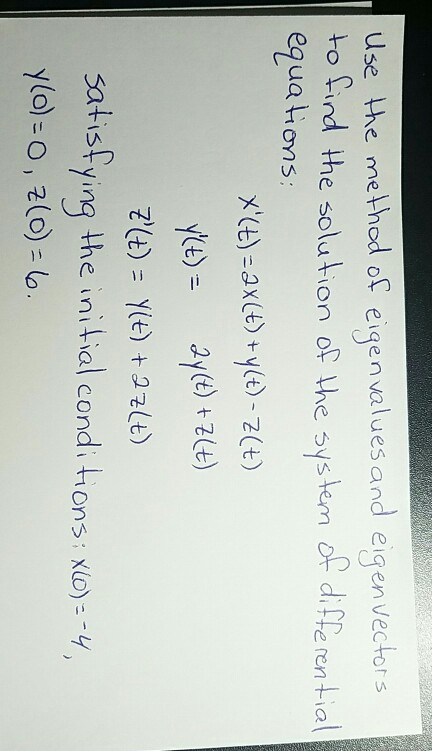 Use the method of eigenvalues and eigenvectors
to find the solution of the system of differential
equations:
x'(t) = 2x(t) + y(t) - z(t)
y'(t) = 2y(t) + z(t)
z'(t) = y(t) + 2z(t)
satisfying the initial conditions: x(0) = -4,
y(0) = 0, z(0) = 6.